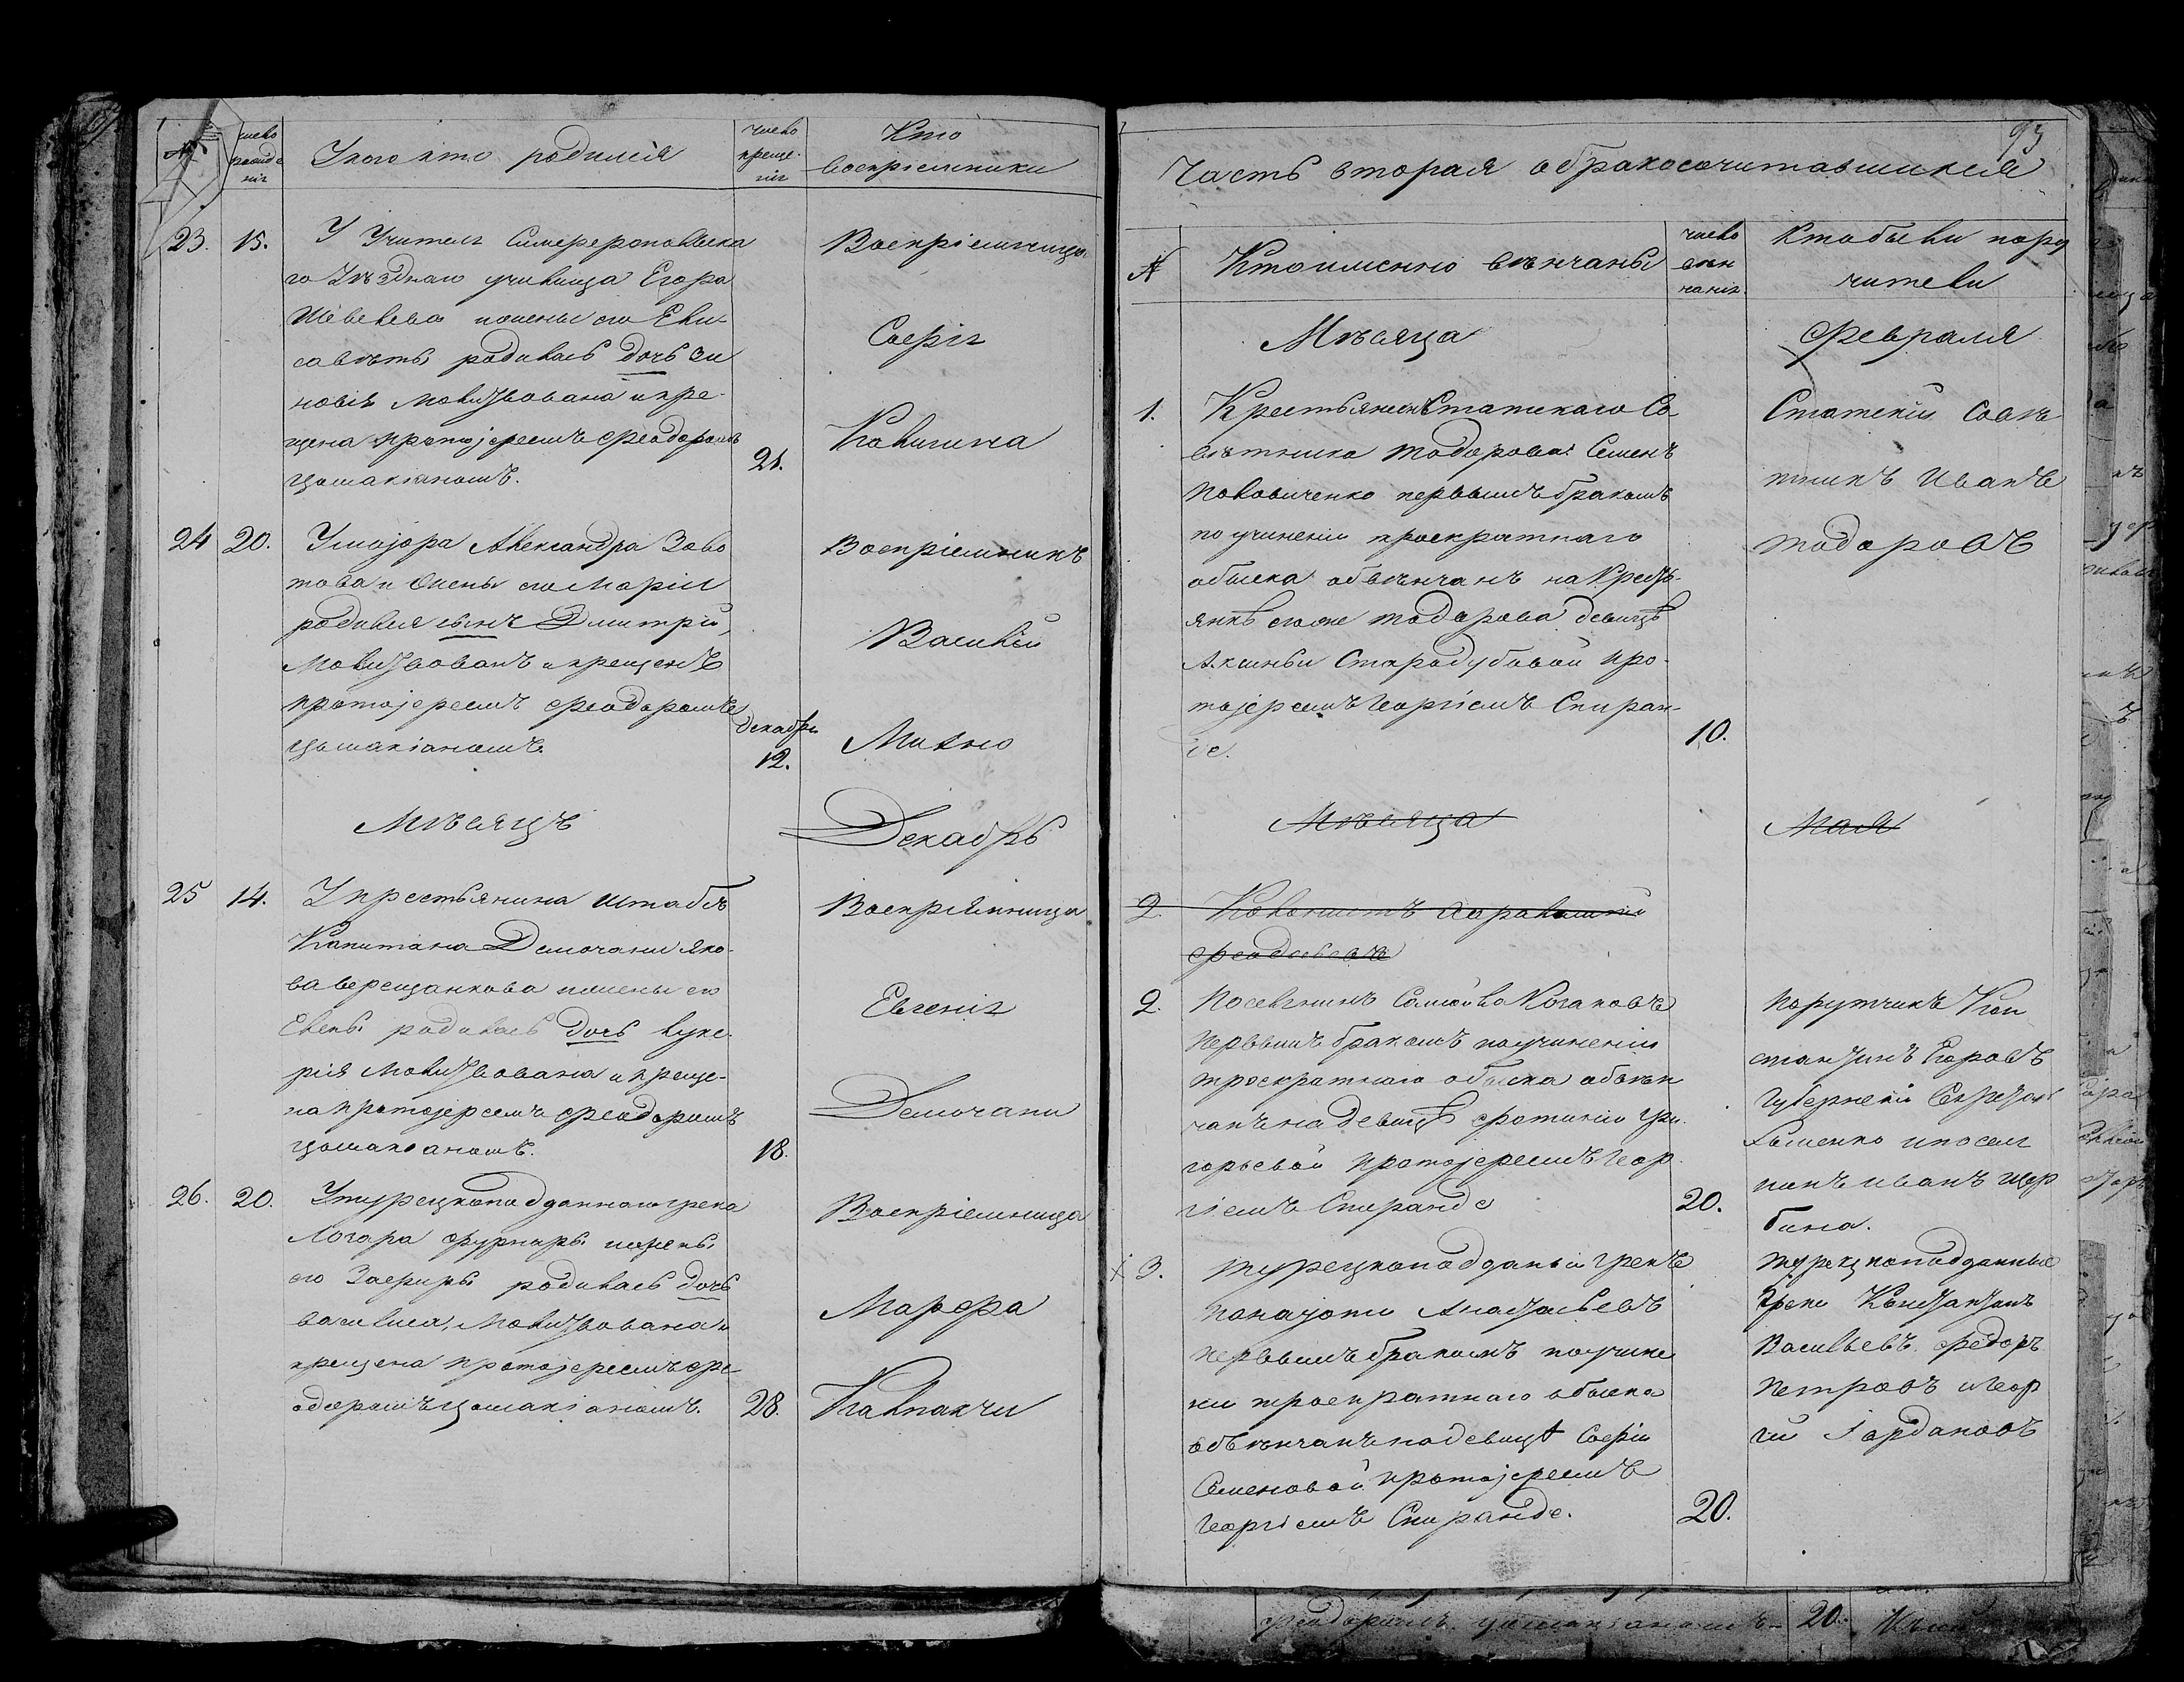 № число рожде нія У кого кто родился число креще- нія Кто воспріемники
23. 15. У Учителя Симферопольска
го Уѣзднаго училища Егора
и жены его Ели-
саветы родилась дочь Зи
новія Молитвована и кре-
щена протоіереемъ Феодоромъ 21.
Цомакіономъ.
Воспріемница
Софія
24 20. У маіора Александра Золо
това и жены его Маріи
родился сынъ Дмитрій,
Молитвованъ и крещенъ
протоіереемъ Феодоромъ
Цомакіаномъ. Декабря 12.
Воспріемникъ
Василій
Мѣсяцъ Декабрь
25 14. У крестьянина Штабсъ
Капитана Демочани Яко-
ва Верещанкова и жены его
Елены родилась дочь Луке-
рія Молитвована и креще-
на протоіереемъ Феодоромъ
Цомакіаномъ. 18.
Воспріемница
Евгенія
Демочани
26. 20. У турецкоподданнаго грека
и жены
его Зафиры родилась дочь
Василиса, Молитвована и
крещена протоіереемъ Фе
одоромъ Цомакіаномъ. 28.
Воспріемница
Марфа
Калпакчи
93
Часть вторая о бракосочитавшихся
№ Кто именно вѣнчаны число вѣн чанія. Кто были пору чители
Мѣсяца Февраля
1. Крестьянинъ Статскаго Со
вѣтника Тодорова Семенъ
первымъ бракомъ
по учиненіи троекратнаго
обыска обвѣнчанъ на Кресть-
янкѣ его же Тодорова девицѣ
Аксиньи Стародубовой про-
тоіереемъ Георгіемъ Спиран- 10.
де.
Статскій Совѣ
тникъ Иванъ
Тодоровъ
Мѣсяца Мая
2.
Феодосьевъ
2. Поселянинъ Самойло Когановъ
первымъ бракомъ по учиненіи
троекратнаго обыска обвѣн
чанъ на девицѣ Фотиніи Гри-
горьевой протоіереемъ Геор
гіемъ Спиранде 20.
Порутчикъ Кон
стантинъ Егоровъ
Губернскій Секретарь
и посел
янъ Иванъ Щер
бина.
3. Турецкоподданый грекъ
Панаіоти Анастасьевъ
первымъ бракомъ по учине
ніи троекратнаго обыска
обвѣнчанъ на девицѣ Софіи
Семеновой протоіереемъ
Георгіемъ Спиранде. 20.
Турецкоподданные
Греки Константинъ
Васильевъ Федоръ
Петровъ и Геор
гій Іордановъ
Феодоромъ Цомакіаномъ 20.